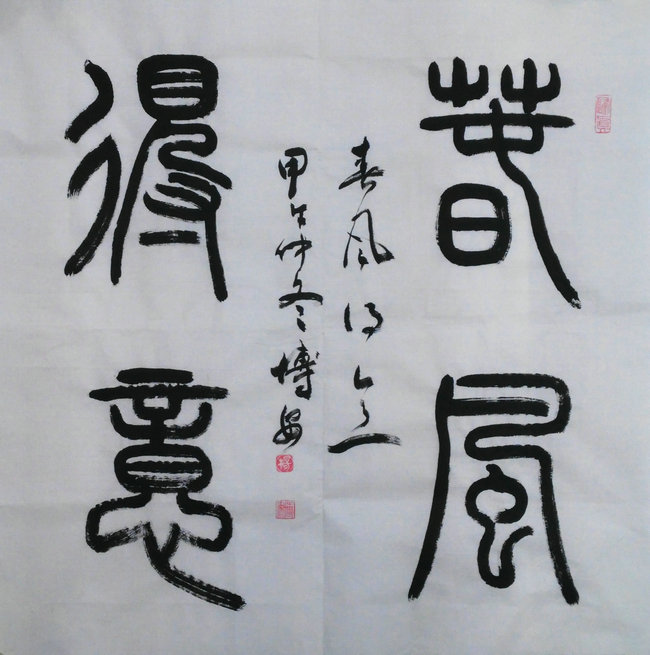 春風
得意
春风得意
甲午仲冬博安